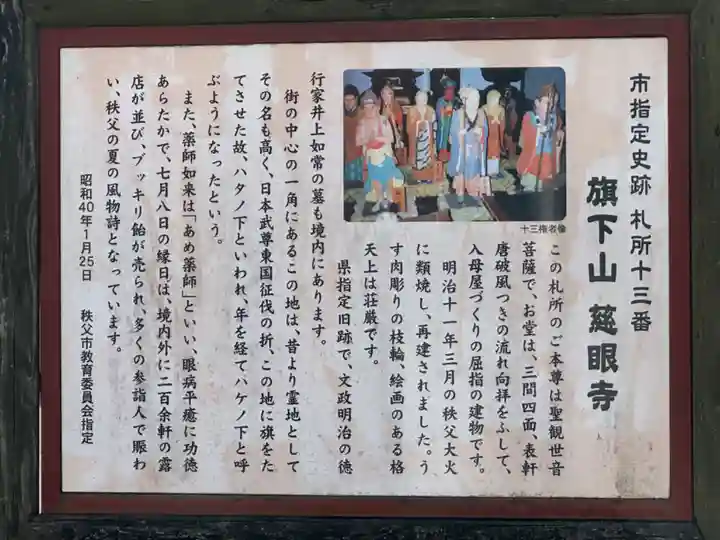 市指定史跡 札所十三番
旗下山 慈眼寺
この札所のご本尊は聖観世音
菩薩で、お堂は、三間四面、表軒
唐破風つきの流れ向拝をふして、
入母屋づくりの屈指の建物です。
明治十一年三月の秩父大火
に類焼し、再建されました。う
す肉彫りの枝輪、絵画のある格
天上は荘厳です。
県指定旧跡で、文政明治の徳
十三権者像
行家井上如常の墓も境内にあります。
街の中心の一角にあるこの地は、昔より霊地として
その名も高く、日本武尊東国征伐の折、この地に旗をた
てさせた故、ハタノ下といわれ、年を経てハケノ下と呼
ぶようになったという。
また、薬師如来は「あめ薬師」といい、眼病平癒に功徳
あらたかで、七月八日の縁日は、境内外に二百余軒の露
店が並び、ブッキリ飴が売られ、多くの参詣人で賑わ
い、秩父の夏の風物詩となっています。
昭和40年1月25日 秩父市教育委員会指定